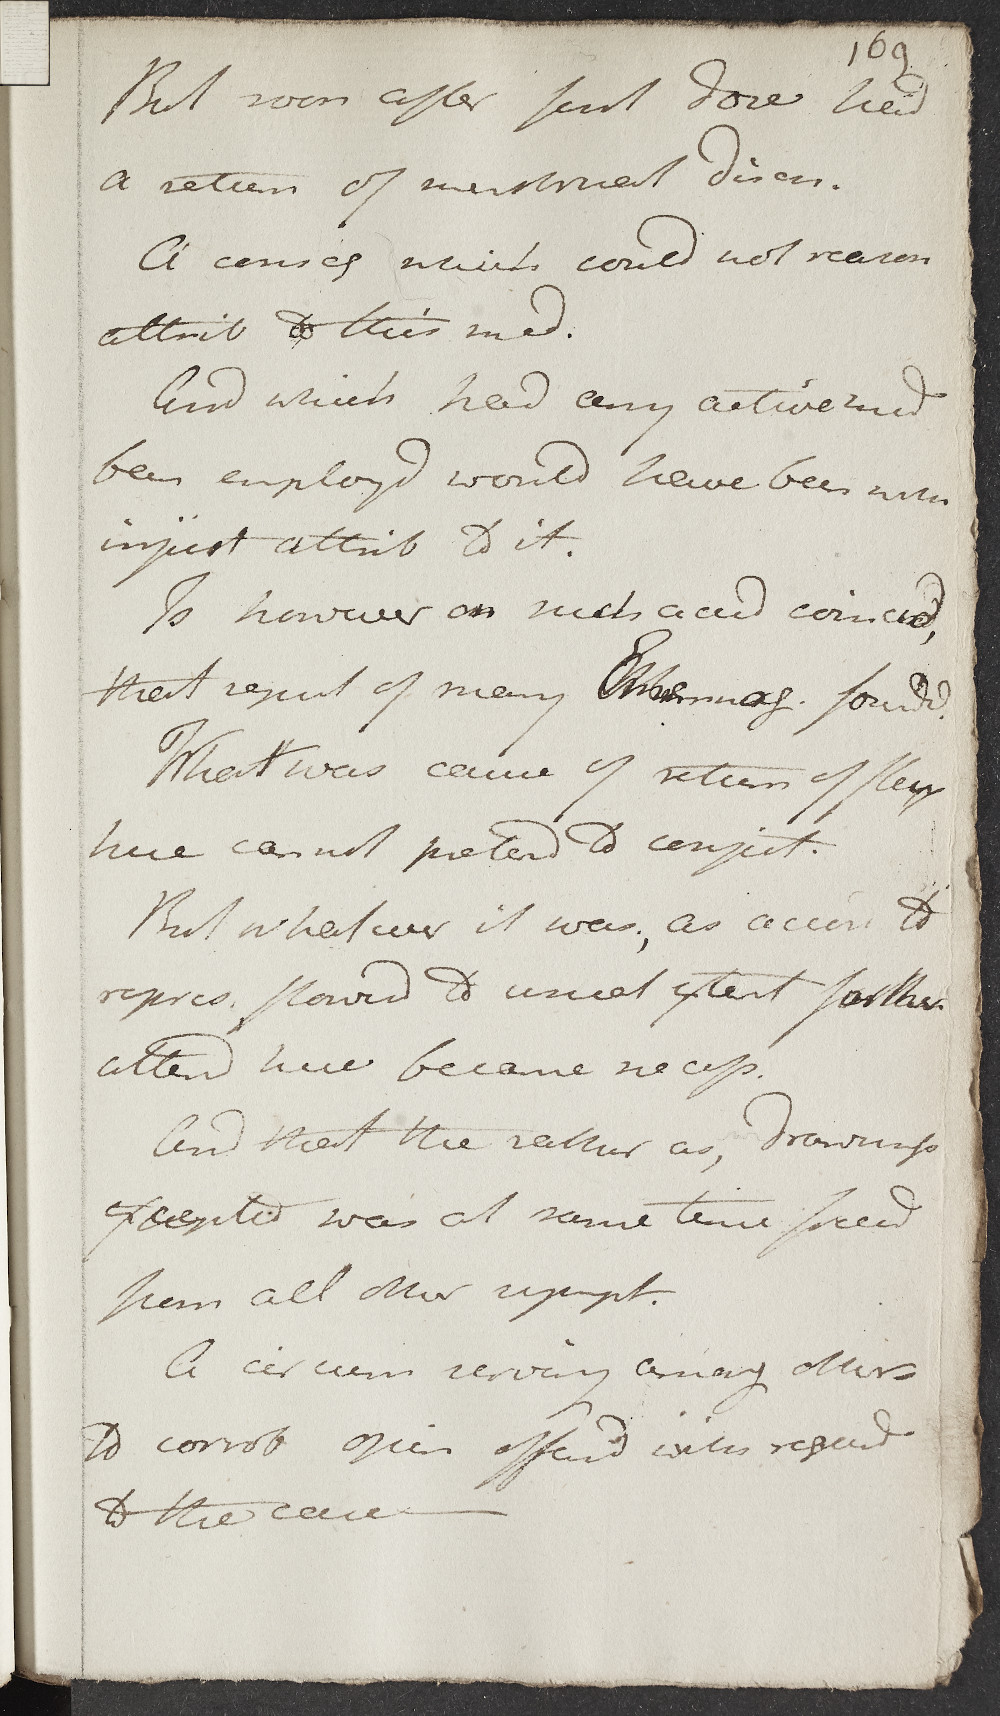 169
But soon after first dose had
a return of menstrual discn.
A conseq which could not reason
attrib to this med.
And which had any active med
been employd would have been not
injust attrib to it.
Is however on such accid coincid,
that reput of many Emmenag. found.
What was cause of return of
here cannot pretend to conject.
But whatever it was, as accord to
repres. flowed to usual extent farther
attend here became necess.
And that the rather as, drowings
excepted was at same time freed
from all other sympt.
A circum serving among others
to corrob opin offerd with regard
to the case